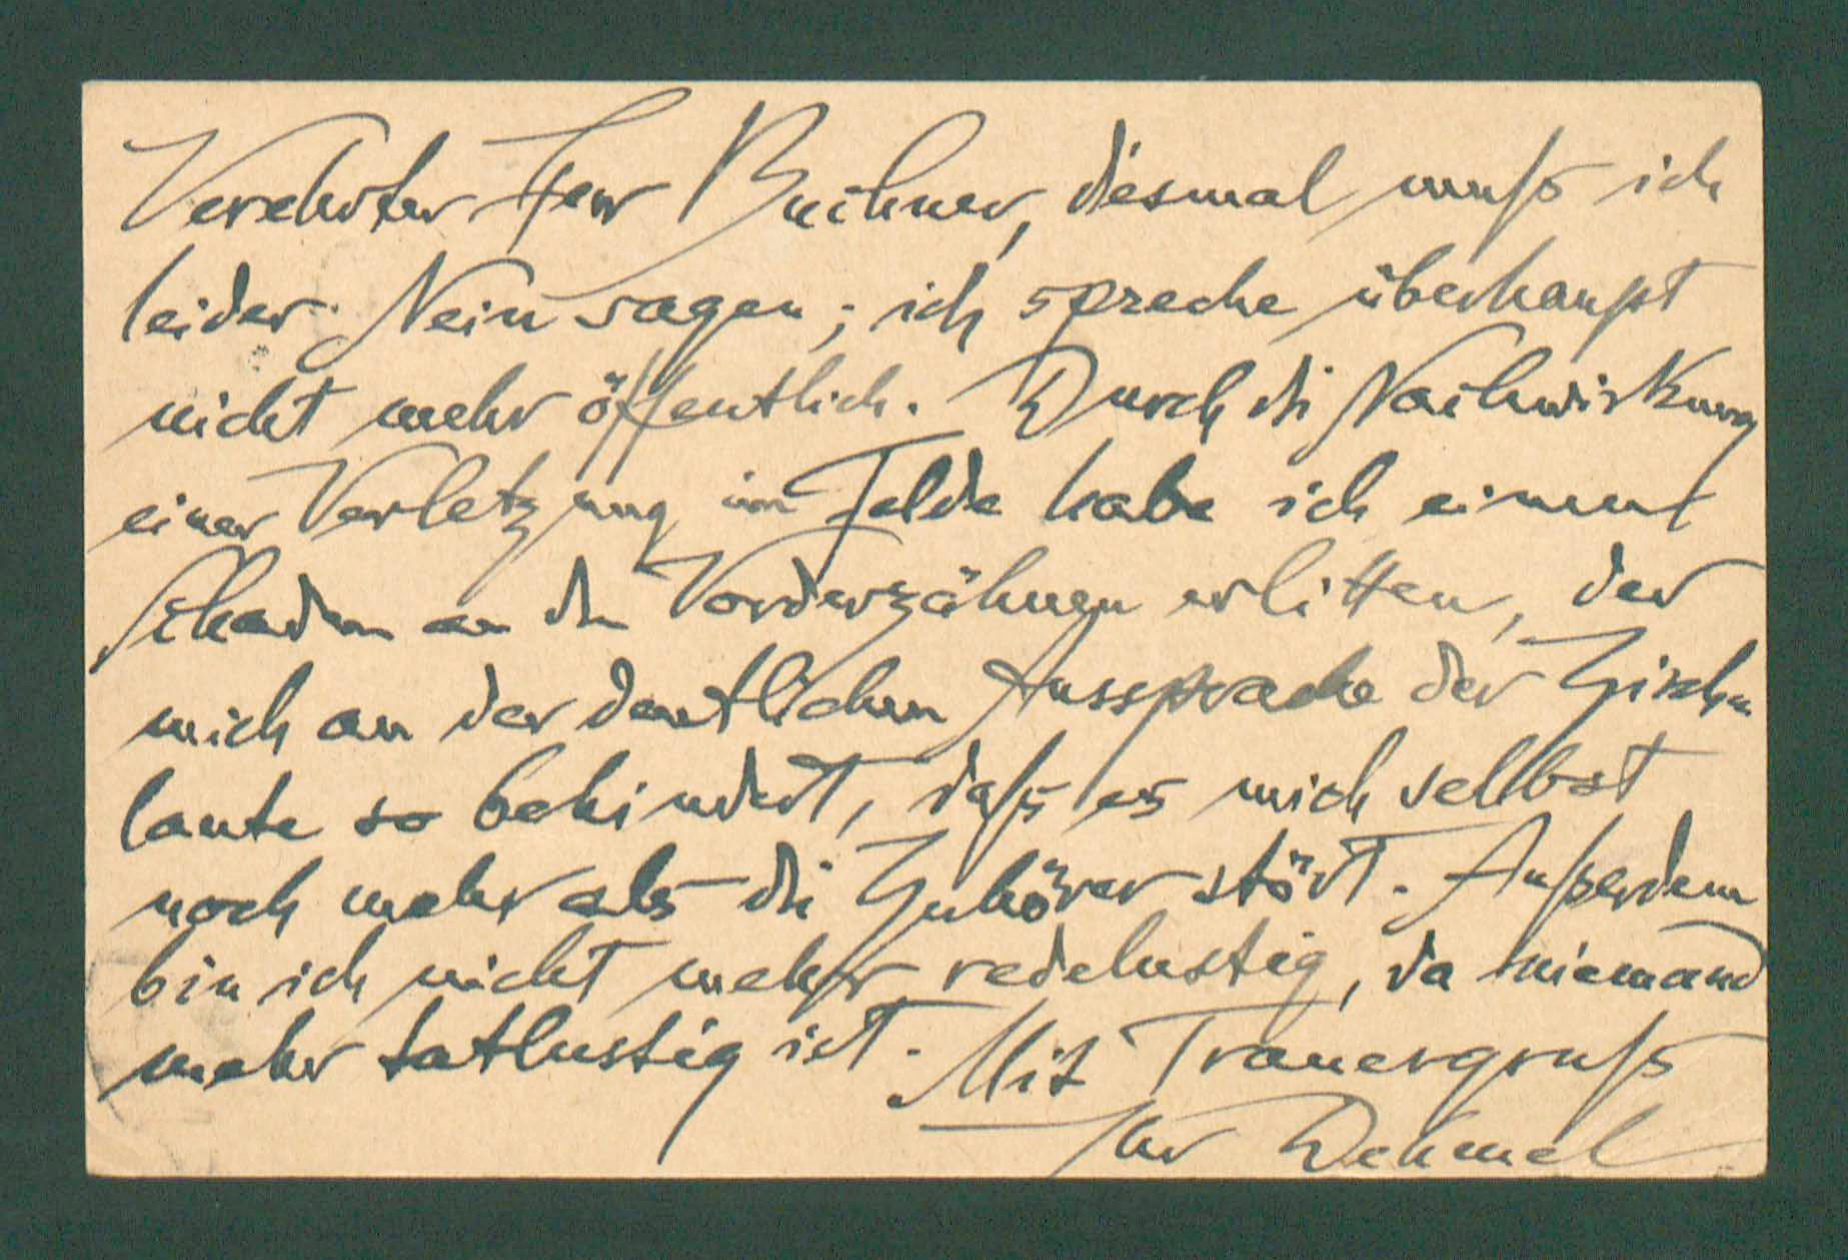 Verehrter Herr Buchner, diesmal muß ich
leider Nein sagen; ich spreche überhaupt
nicht mehr öffentlich. Durch die Nachwirkung
einer Verletzung im Felde habe ich einen
Schaden an den Vorderzähnen erlitten, der
mich an der deutlichen Aussprache der Zisch-
laute so behindert, daß es mich selbst
noch mehr als die Zuhörer stört. Außerdem
bin ich nicht mehr redelustig, da niemand
mehr tatlustig ist. Mit Trauergruß
Ihr Dehmel